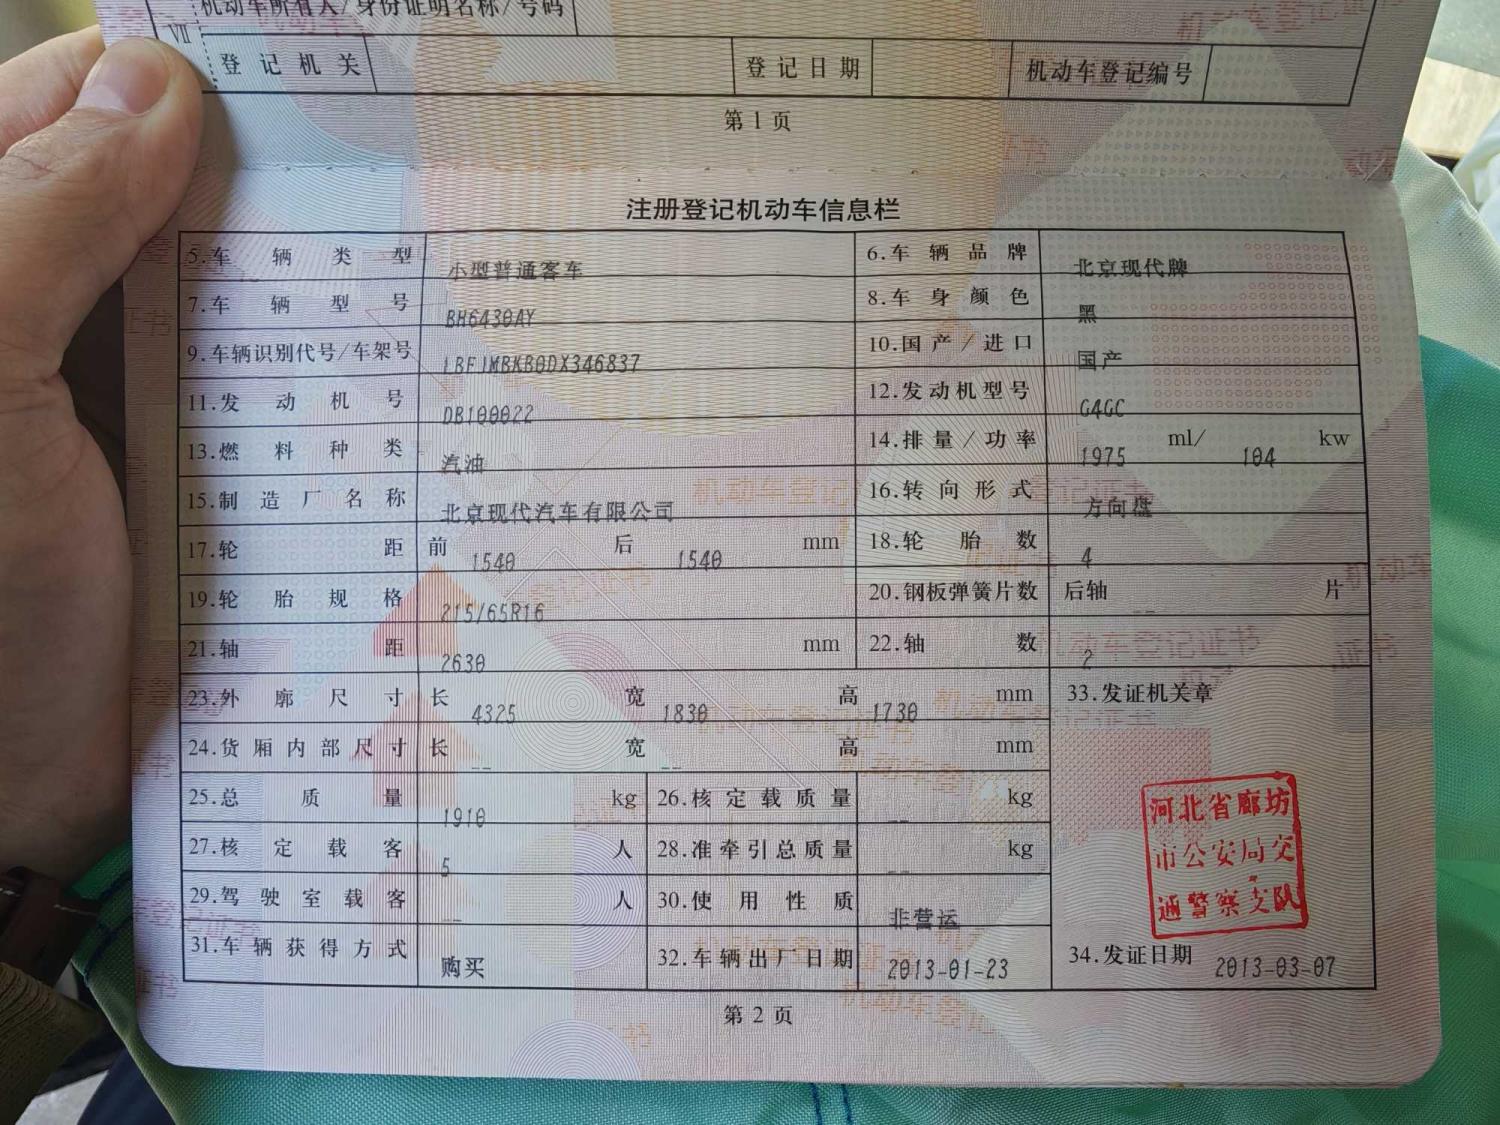 机动车所有人/身份证明名称/号码
Ⅶ
登记机关 登记日期 机动车登记编号
第1页
注册登记机动车信息栏
5.车辆类型 小型普通客车 6.车辆品牌 北京现代牌
7.车辆型号 BH6430AY 8.车身颜色 黑
9.车辆识别代号/车架号 LBFJMBKB0DX346837 10.国产/进口 国产
11.发动机号 DB100022 12.发动机型号 G4GC
13.燃料种类 汽油 14.排量/功率 1975 ml/ 104 kw
15.制造厂名称 北京现代汽车有限公司 16.转向形式 方向盘
17.轮距 前 1540 后 1540 mm 18.轮胎数 4
19.轮胎规格 215/65R16 20.钢板弹簧片数 后轴 -- 片
21.轴距 2630 mm 22.轴数 2
23.外廓尺寸 长 4325 宽 1830 高 1730 mm 33.发证机关章
24.货厢内部尺寸 长 -- 宽 -- 高 mm
25.总质量 1910 kg 26.核定载质量 -- kg
27.核定载客 5 人 28.准牵引总质量 -- kg
29.驾驶室载客 -- 人 30.使用性质 非营运
河北省廊坊
市公安局交
通警察支队
31.车辆获得方式 购买 32.车辆出厂日期 2013-01-23 34.发证日期 2013-03-07
第2页